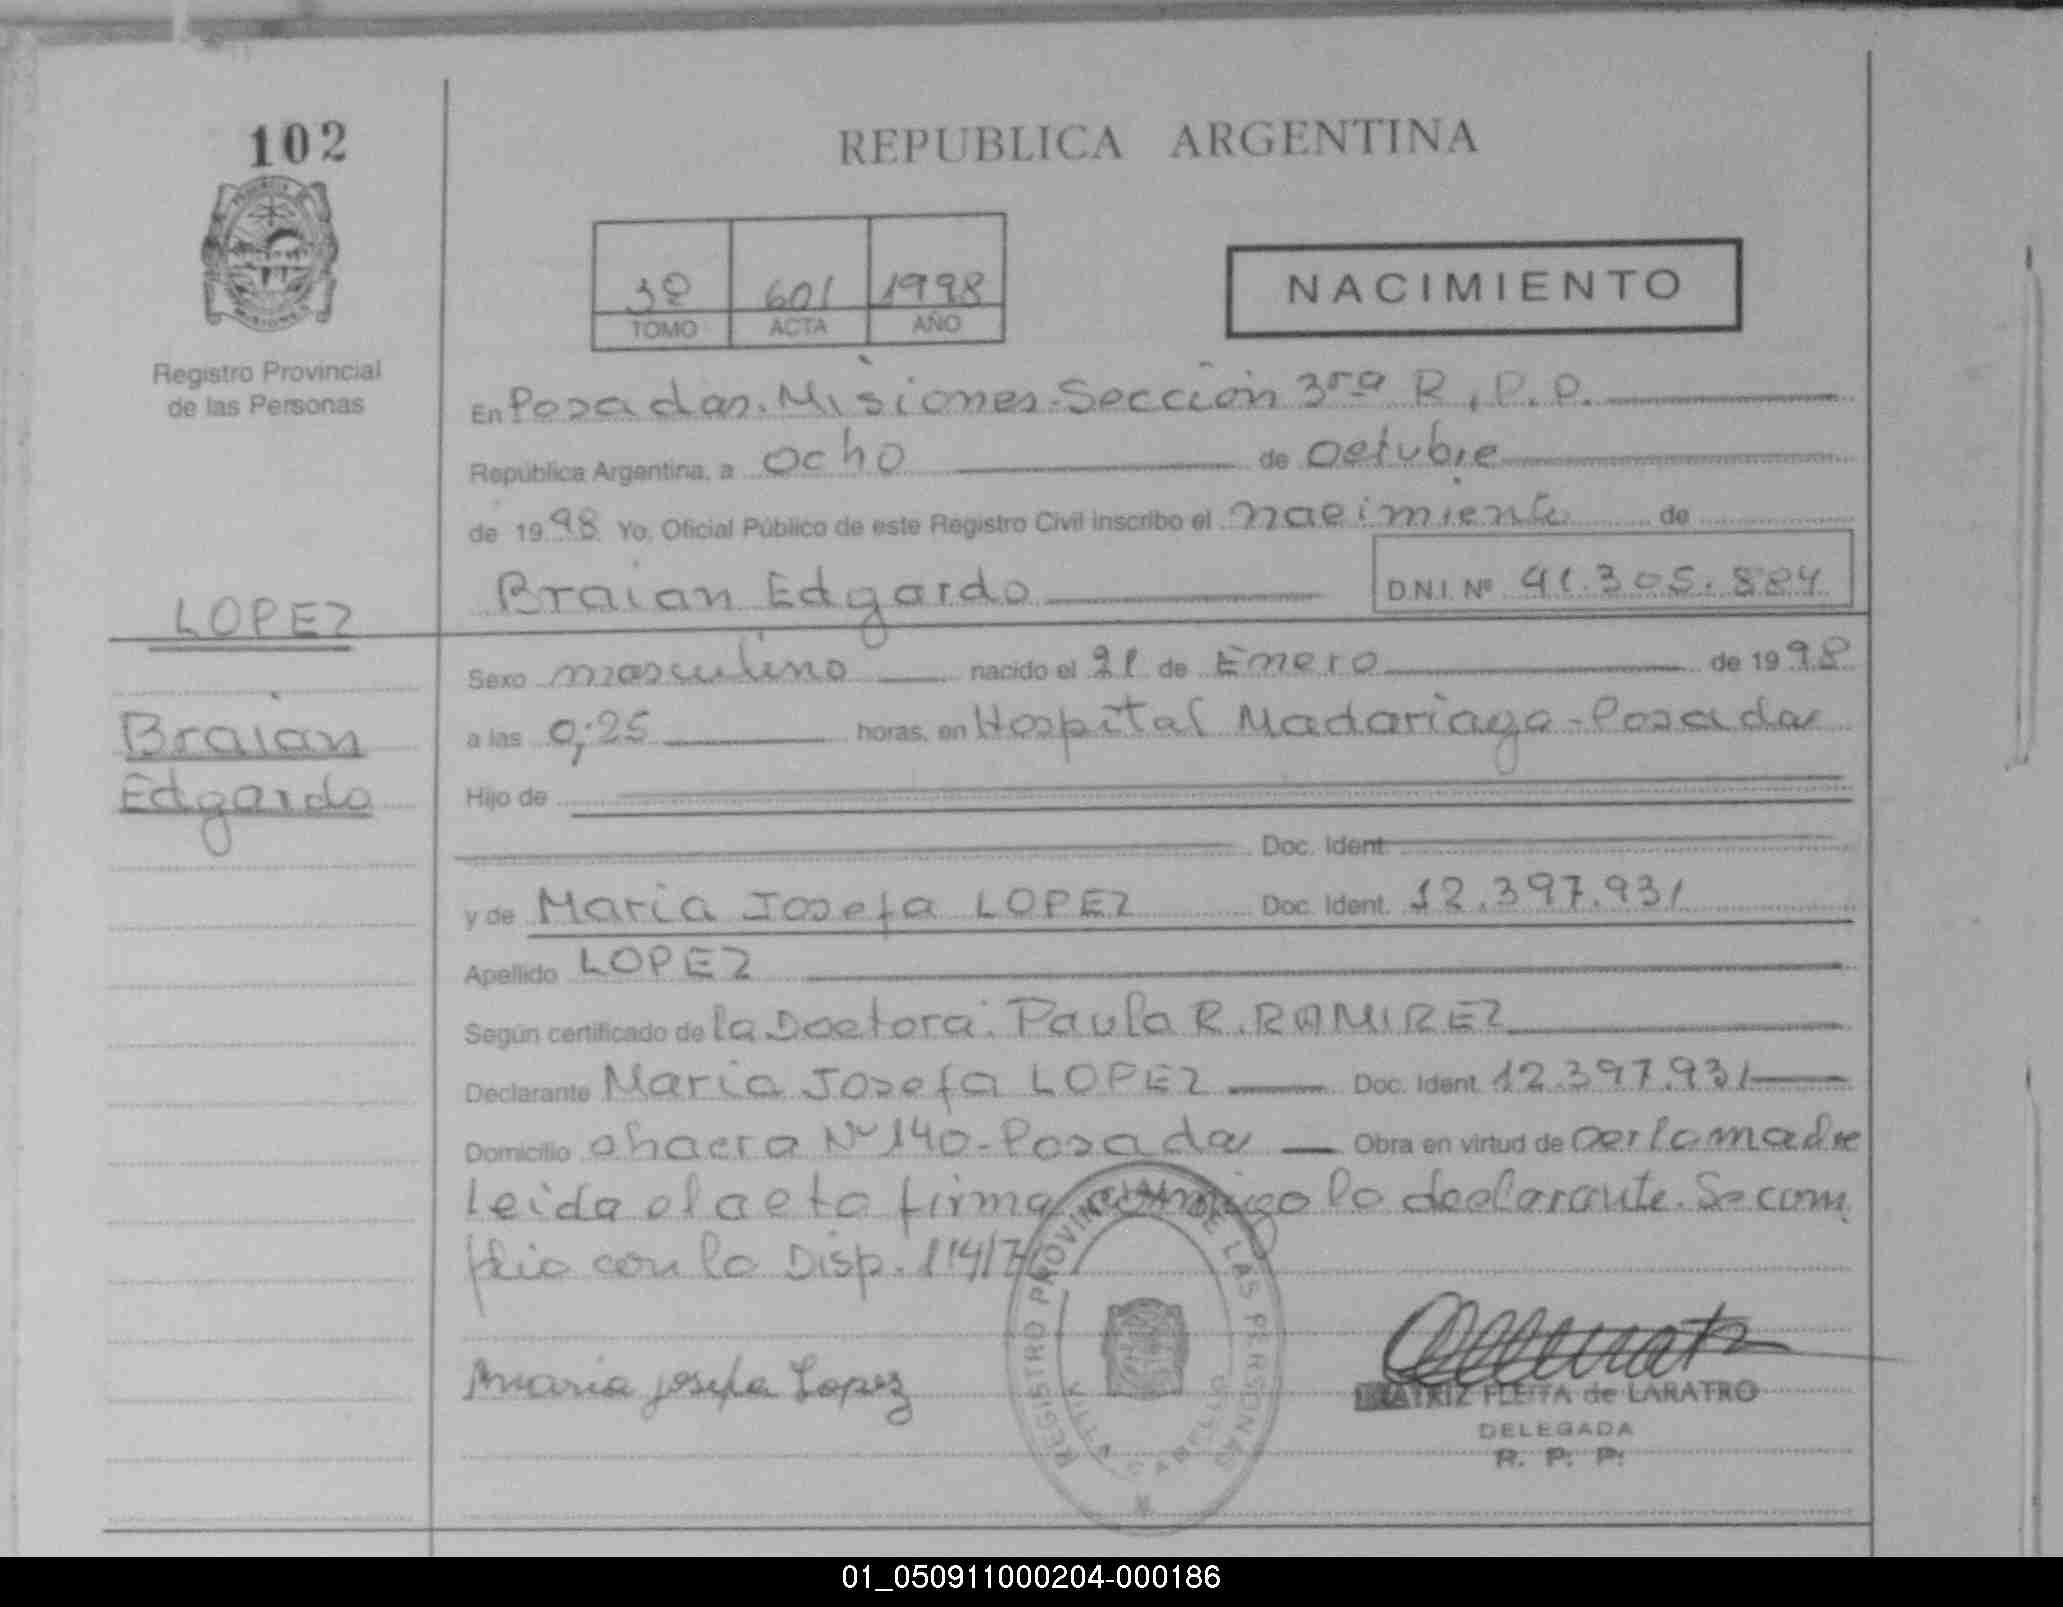 102
REPUBLICA ARGENTINA
3º 601 1998
TOMO ACTA AÑO
NACIMIENTO
Registro Provincial
de las Personas
En Posadas. Misiones. Sección 3ra R.P.P.
República Argentina, a ocho de octubre
de 1998 Yo, Oficial Público de este Registro Civil inscribo el nacimiento de
Braian Edgardo D.N.I. Nº 41.305.884
LOPEZ
Braian
Edgardo
Sexo masculino nacido el 21 de Enero de 1998
a las 0,25 horas, en Hospital Madariaga - Posadas
Hijo de
Doc. Ident.
y de Maria Josefa LOPEZ Doc. Ident. 12.397.931
Apellido LOPEZ
Según certificado de la Doctora: Paula R. RAMIREZ
Declarante Maria Josefa LOPEZ Doc. Ident. 12.397.931
Domicilio chacra Nº 140 - Posadas Obra en virtud de ser la madre
Leida el acta firma conmigo la declarante. Se cum
plio con la Disp. 114/7
Maria josefa Lopez
REGISTRO PROVINCIAL DE LAS PERSONAS
FLEITA de LARATRO
DELEGADA
R. P. P.
01_050911000204-000186